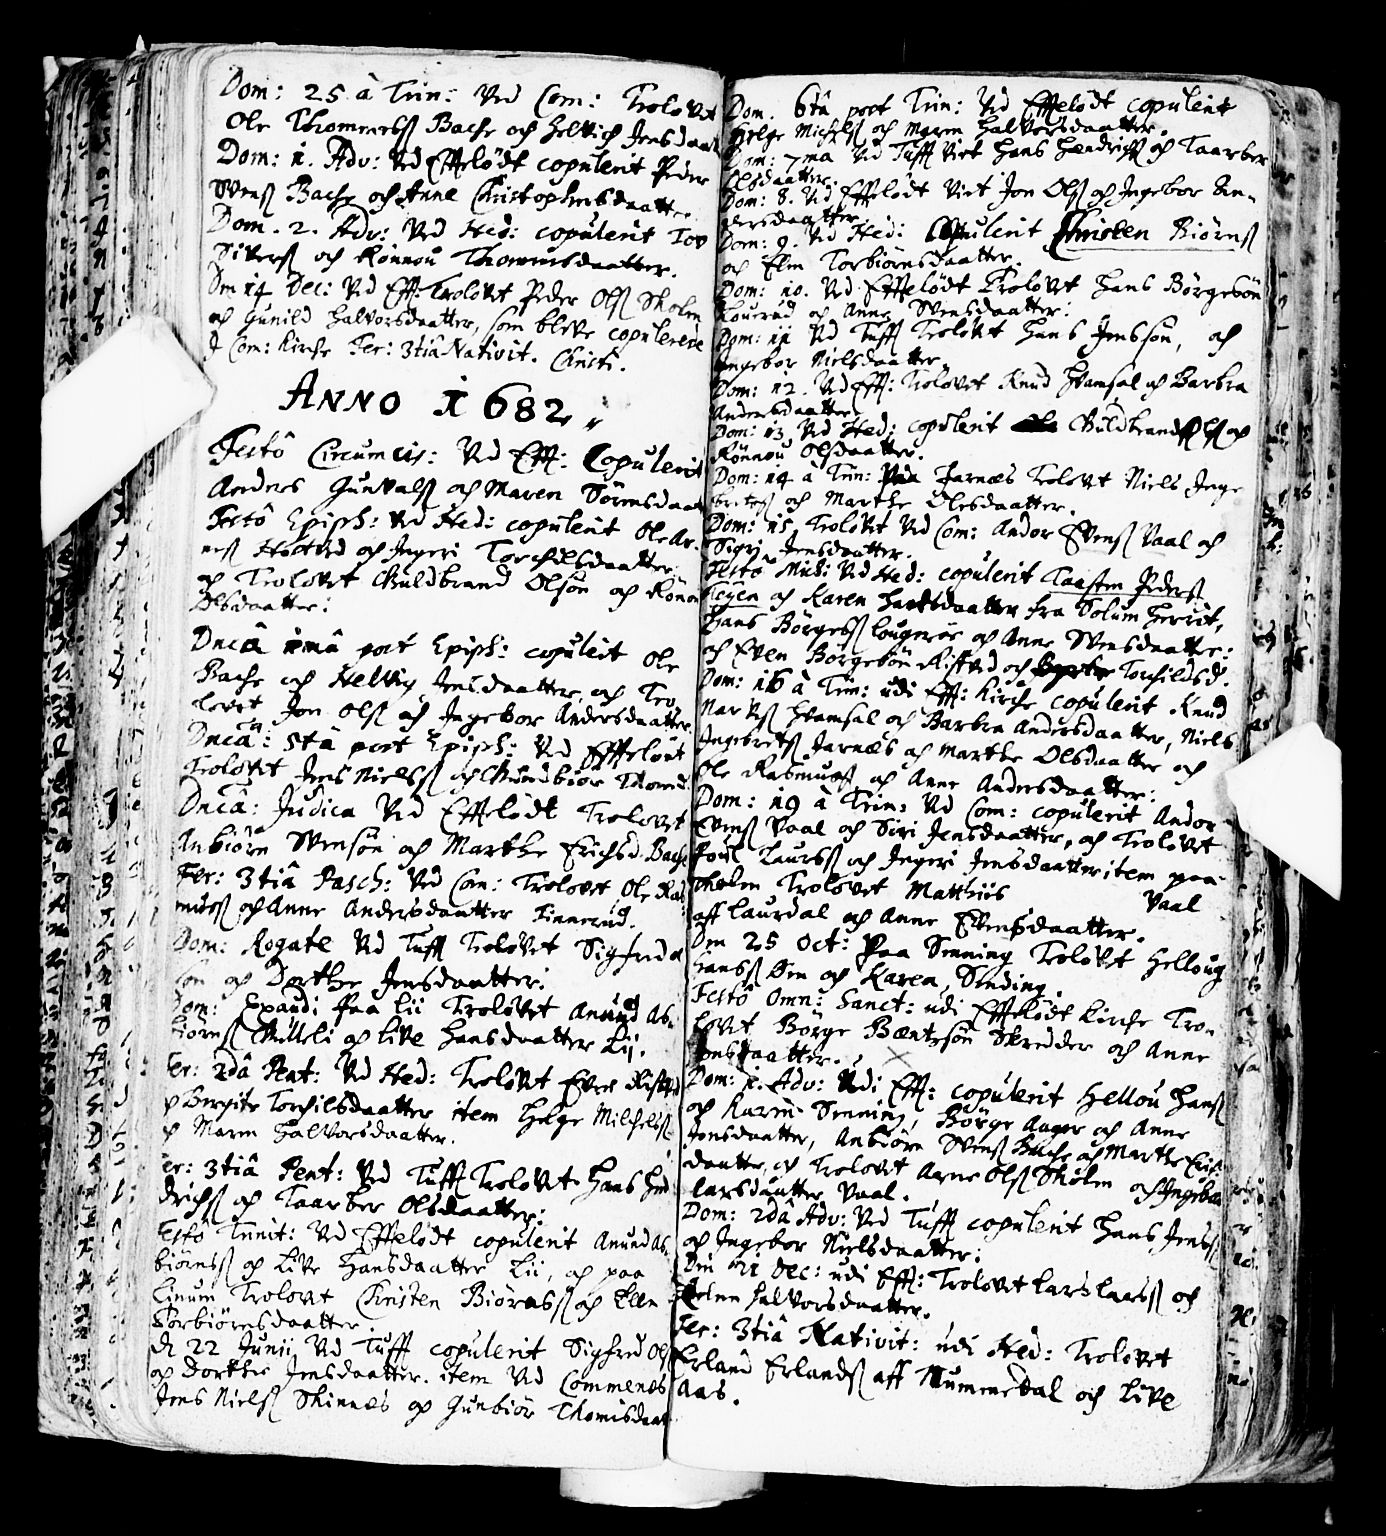 Dom: 25 à Trin: Ved Com: Trolovet
Ole Thommesß Bache och Helvich Jensdaat
Dom: 1. Adv: Ved Effelödt copulerit Peder
Svensß Bache och Anne Christophersdaatter
Dom. 2. Adv: Ved Hed: copulerit Tov
Siversß och Rönnou Thommisdaatter.
Dm 14 Dec: Ved Eff: Trolovet Peder Olsß Skolm
och Gunild Halvorsdaatter, som bleve copulerede
J Com: Kirche Fer: 3tiâ Nativit. Christi.
ANNO 1682
Festô Circumcis: Ved Eff: Copulerit
Anders Gunvalsß och Maren Sörensdaat
Festô Epiph: Ved Hed: copulerit Ole Ar-
nesß Hostved och Jngeri Torchilsdaatter
och Trolovet Guldbrand Olsön och Rönou
Olsdaatter:
Dncâ 1mâ post Epiph: copulerit Ole
Bache och Helvig Jensdaatter, och Tro
lovet Jon Olsß och Jngebor Andersdaatter
Dncâ: 5tâ post Epiph: Ved Effelödt
Trolovet Jens Nielsß och Gundbiör Thomisd
Dncâ: Judica Ved Effelödt Trolovet
Anbiörn Svensön och Marthe Erichsd. Bache
Fer: 3tiâ Pasch: Ved Com: Trolovet Ole Ras
musß och Anne Andersdaatter Finnerud.
Dom: Rogate Ved Tuff Trolovet Sigfred ol
sön och Dorthe Jensdaatter:
Dom: Exaudi Paa Lii Trolovet Anund As-
biörnsß och Live Hansdaatter Lij.
Fer: 2dâ Pent: Ved Hed: Trolovet Even Ristved
och Bergite Torchilsdaatter item Helge Milchelsß
och Maren Halvorsdaatter.
Fer: 3tiâ Pent: Ved Tuff Trolovet Hans Hen
drichsß och Taarber Olsdaatter:
Festô Trinit: Ved Effelödt copulerit Anund As-
biörnsß och Live Hansdaatter Lii, och paa
Linum Trolovet Christen Biörnsß och Elen
Torbiörnsdaatter.
d 22 Junii Ved Tufft copulerit Sigfred Olsß
och Dorthe Jensdaatter. item Ved Commenes
Jens Nielsß Skinnes og Gunbiör Thomisdaat
Dom. 6tâ post Trin: Ved Effelödt copulerit
Helge Michelsß och Maren Halvorsdaatter.
Dom: 7ma Ved Tufft Viet Hans Hendrichsß och Taarber
Olsdaatter.
Dom: 8. Ved Effelödt Viet Jon Olsß och Jngebor An-
dersdaatter
Dom: 9. Ved Hed: Copulerit Christen Biörnsß
och Elin Torbiörnsdaatter.
Dom: 10. Ved Effelödt Trolovet Hans Börgesön
och Anne Svensdaatter:
Dom: 11 Ved Tufft Trolovet Hans Jenssön, och
Jngebor Nielsdaatter
Dom: 12. Ved Eff: Trolovet Knud Hvamsal och Barbra
Andersdaatter
Dom: 13 Ved Hed: copulerit Guldbrand Olsß och
Rönnou Olsdaatter.
Dom: 14 à Trin: Jarnæs Trolovet Niels Jnge
bretsß och Marthe Olesdaatter.
Dom: 15. Trolovet Ved Com: Andor Evensß Vaal och
Sigri Jensdaatter.
Festô Mich: Ved Hed: copulerit Taasten Pedersß
och Karen fra Solum Herrit,
Hans Börgesß och Anne Svensdaatter:
och Even Börgesön Ristved och Torchildsd:
Dom: 16 à Trin: udi Eff: Kirche copulerit Knud
Hvamsal och Barbra Andersdaatter, Niels
Jngebretsß Jarnæs och Marthe Olsdaatter och
Ole Rasmusß och Anne Andersdaatter:
Dom: 19 à Trin: Ved Com: copulerit Andor
Evensß Vaal och Siri Jensdaatter, och Trolovet
Poul Laursß och Jngeri Jensdaatter item paa
Skolm Trolovet Matthiis Vaal
aff Laurdal och Anne Evensdaatter.
Dm 25 Oct: Paa Senning Trolovet Helloug
Hansß Øen och Karen Senning.
Festô Omn: Sanct: udi Effelödt Kirche Tro-
lovet Börge Bentsön Skredder och Anne
Jensdaatter.
Dom: 1. Adv: Udi Eff: copulerit Hellou Hansß
och Karin Senning, Börge Aager och Anne
Jensdaatter, Anbiörn Svensß Bache och Marthe Erich
daatter, och Trolovet Aarne Olsß Skolm och Jngebor
Larsdaatter Vaal.
Dom: 2dâ Adv: Ved Tufft copulerit Hans Jensß
och Jngebor Nielsdaatter:
Dm 21 Dec: udi Eff: Trolovet Lars Larsß och
Halvorsdaatter.
Fer: 3tiâ Nativit: udi Hed: Trolovet
Erland Erlandsß aff Nummedal och Live
Aas.